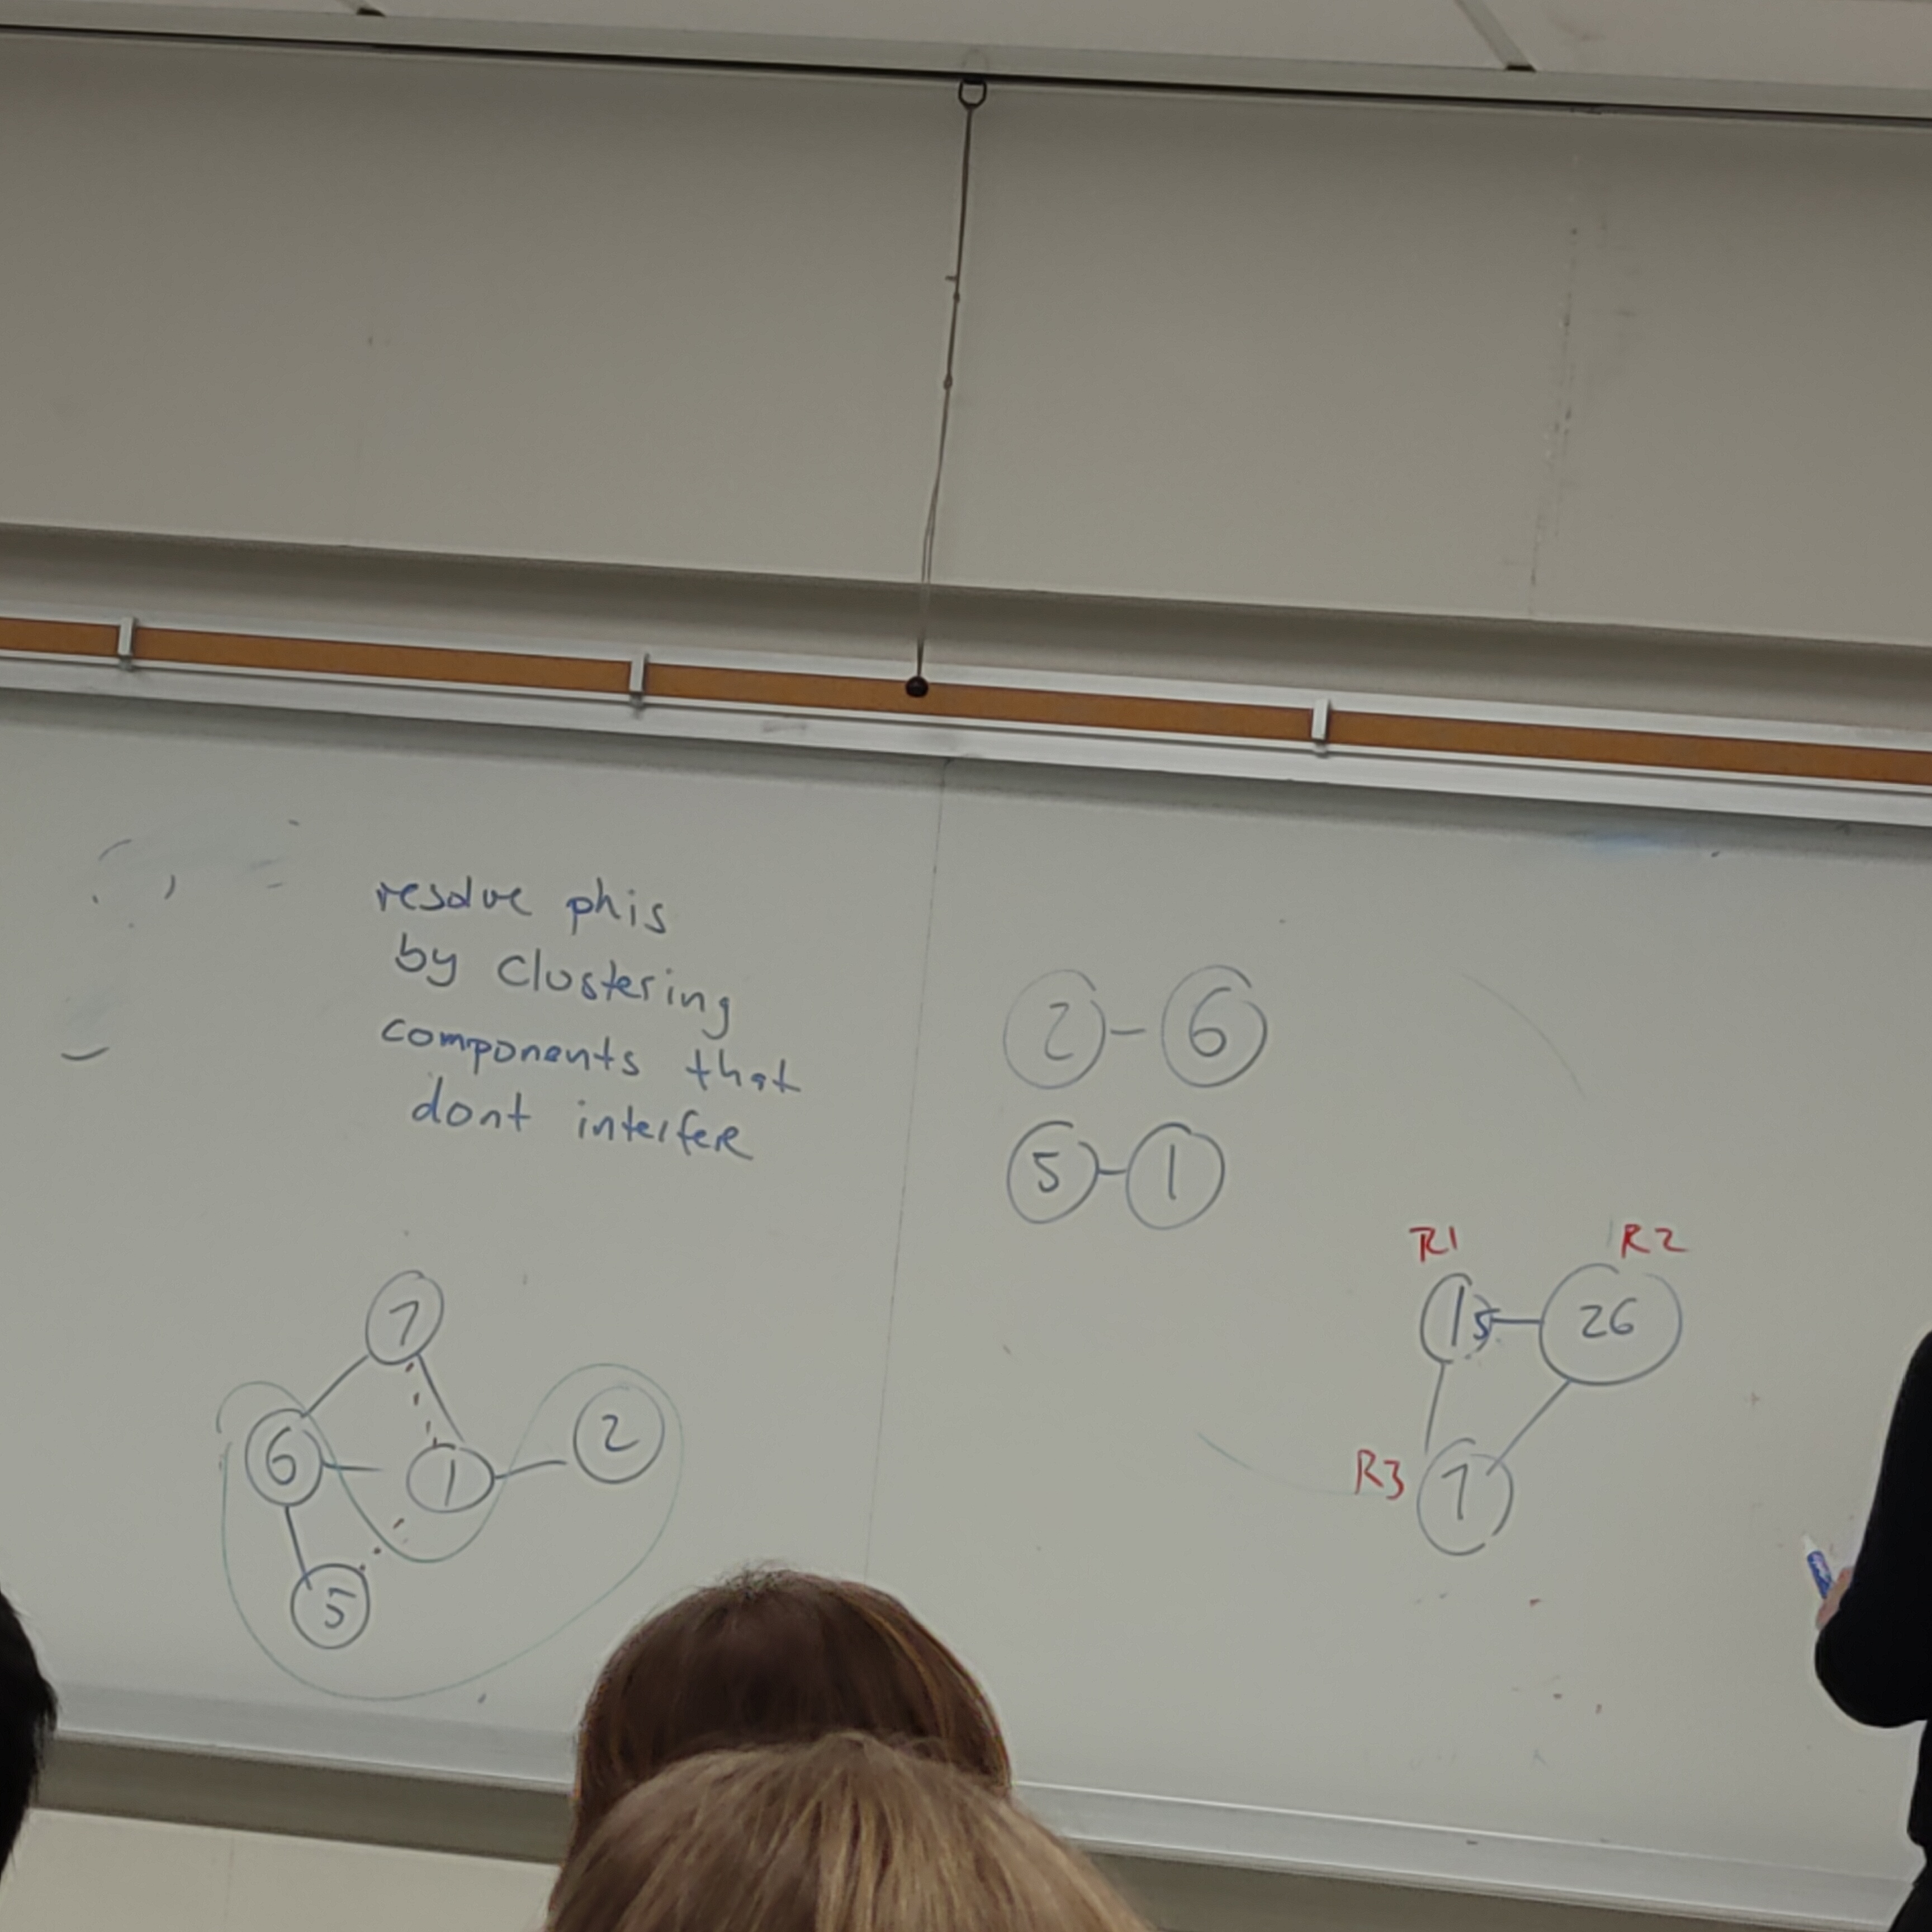 resolve phis
by clustering
components that
dont interfere
2 - 6
5 - 1
R1
R2
15
26
R3
7
7
6
1
2
5